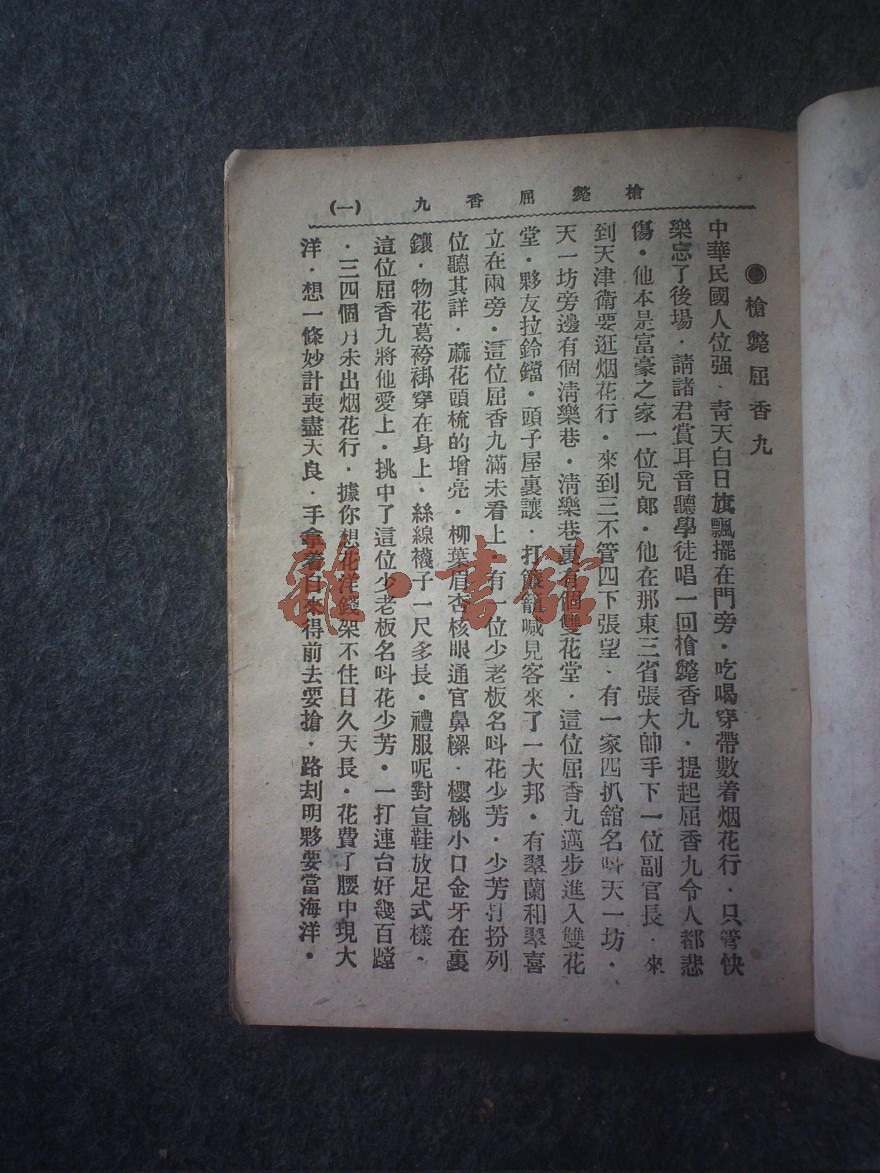 槍斃屈香九 (一)
●槍斃屈香九
中華民國人位强．靑天白日旗飄擺在門旁．吃喝穿帶數着烟花行．只管快
樂忘了後場．請諸君賞耳音聽學徒唱一回槍斃香九．提起屈香九令人都悲
傷．他本是富豪之家一位兒郎．他在那東三省張大帥手下一位副官長．來
到天津衛要逛烟花行．來到三不管四下張望．有一家四扒舘名呌天一坊．
天一坊旁邊有個淸樂巷．淸樂巷裏有個雙花堂．這位屈香九邁步進入雙花
堂．夥友拉鈴鐺．頭子屋裏讓．打簾籠喊見客來了一大邦．有翠蘭和翠喜
立在兩旁．這位屈香九滿未看上．有一位少老板名呌花少芳．少芳打扮列
位聽其詳．蔴花頭梳的增亮．柳葉眉杏核眼通官鼻樑．櫻桃小口金牙在裏
鑲．物花葛袴褂穿在身上．絲線襪子一尺多長．禮服呢對宣鞋放足式樣．
這位屈香九將他愛上．挑中了這位少老板名呌花少芳．一打連台好幾百蹚
．三四個月未出烟花行．據你想花洋錢架不住日久天長．花費了腰中現大
洋．想一條妙計喪盡天良．手拿着白來得前去要搶．路刦明夥要當海洋．
雜·書館